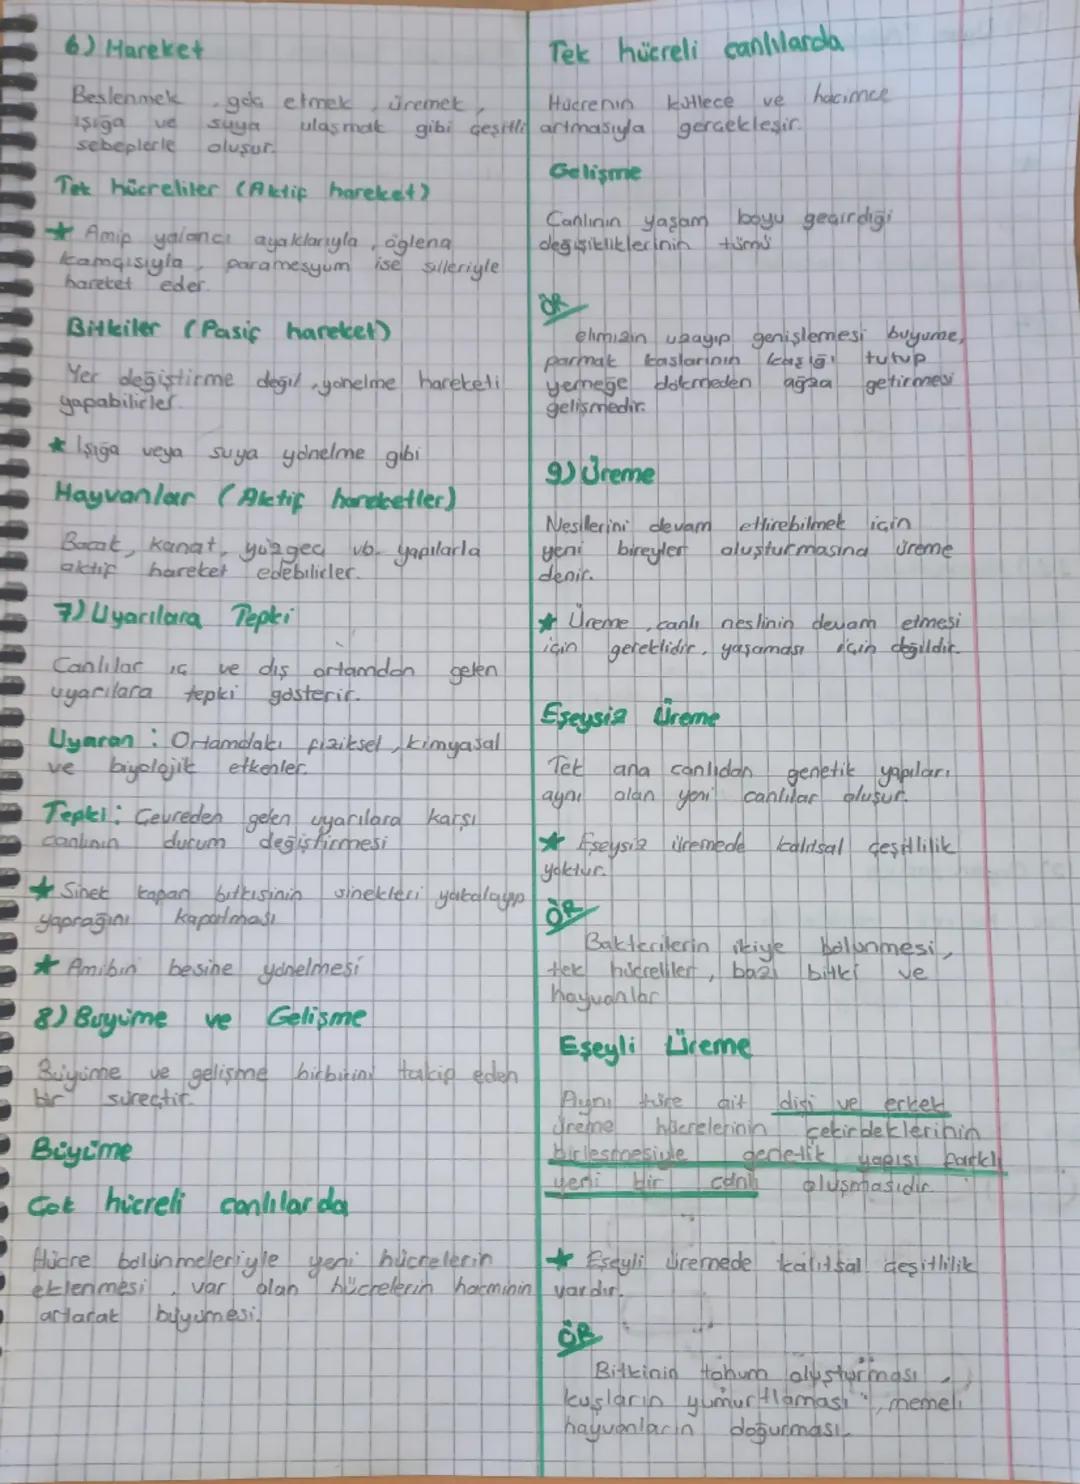 6) Hareket
Beslenmek, göç etmek, üremek,
ışığa ve suya ulaşmak gibi çeşitli
sebeplerle oluşur.
Tek hücreliler (Aktif hareket)
★ Amip yalancı ayaklarıyla, öglena
kamçısıyla, paramesyum ise silleriyle
hareket eder.
Bitkiler (Pasif hareket)
Yer değiştirme değil, yönelme hareketi
yapabilirler.
★ Işığa veya suya yönelme gibi
Hayvanlar (Aktif hareketler)
Bacak, kanat, yüzgeç vb. yapılarla
aktif hareket edebilirler.
7) Uyarılara Tepki
Canlılar iç ve dış ortamdan gelen
uyarılara tepki gösterir.
Uyaran : Ortamdaki fiziksel, kimyasal
ve biyolojik etkenler.
Tepki : Çevreden gelen uyarılara karşı
canlının durum değiştirmesi
★ Sinek kapan bitkisinin sinekleri yakalayıp
yaprağını kapatması
★ Amibin besine yönelmesi
8) Büyüme ve Gelişme
Büyüme ve gelişme birbirini takip eden
bir süreçtir.
Büyüme
Çok hücreli canlılarda
Hücre bölünmeleriyle yeni hücrelerin
eklenmesi, var olan hücrelerin hacminin
artarak büyümesi.
Tek hücreli canlılarda
Hücrenin kütlece ve hacimce
artmasıyla gerçekleşir.
Gelişme
Canlının yaşam boyu geçirdiği
değişikliklerinin tümü
ÖR
elimizin uzayıp genişlemesi büyüme,
parmak kaslarının kaşığı tutup
yemeğe dökmeden ağza getirmesi
gelişmedir.
9) Üreme
Nesillerini devam ettirebilmek için
yeni bireyler oluşturmasına üreme
denir.
★ Üreme, canlı neslinin devam etmesi
için gereklidir, yaşaması için değildir.
Eşeysiz Üreme
Tek ana canlıdan genetik yapıları
aynı olan yeni canlılar oluşur.
★ Eşeysiz üremede kalıtsal çeşitlilik
yoktur.
ÖR
Bakterilerin ikiye bölünmesi,
tek hücreliler, bazı bitki ve
hayvanlar
Eşeyli Üreme
Aynı türe ait dişi ve erkek
üreme hücrelerinin çekirdeklerinin
birleşmesiyle genetik yapısı farklı
yeni bir canlı oluşmasıdır.
★ Eşeyli üremede kalıtsal çeşitlilik
vardır.
ÖR
Bitkinin tohum oluşturması,
kuşların yumurtlaması, memeli
hayvanların doğurması.